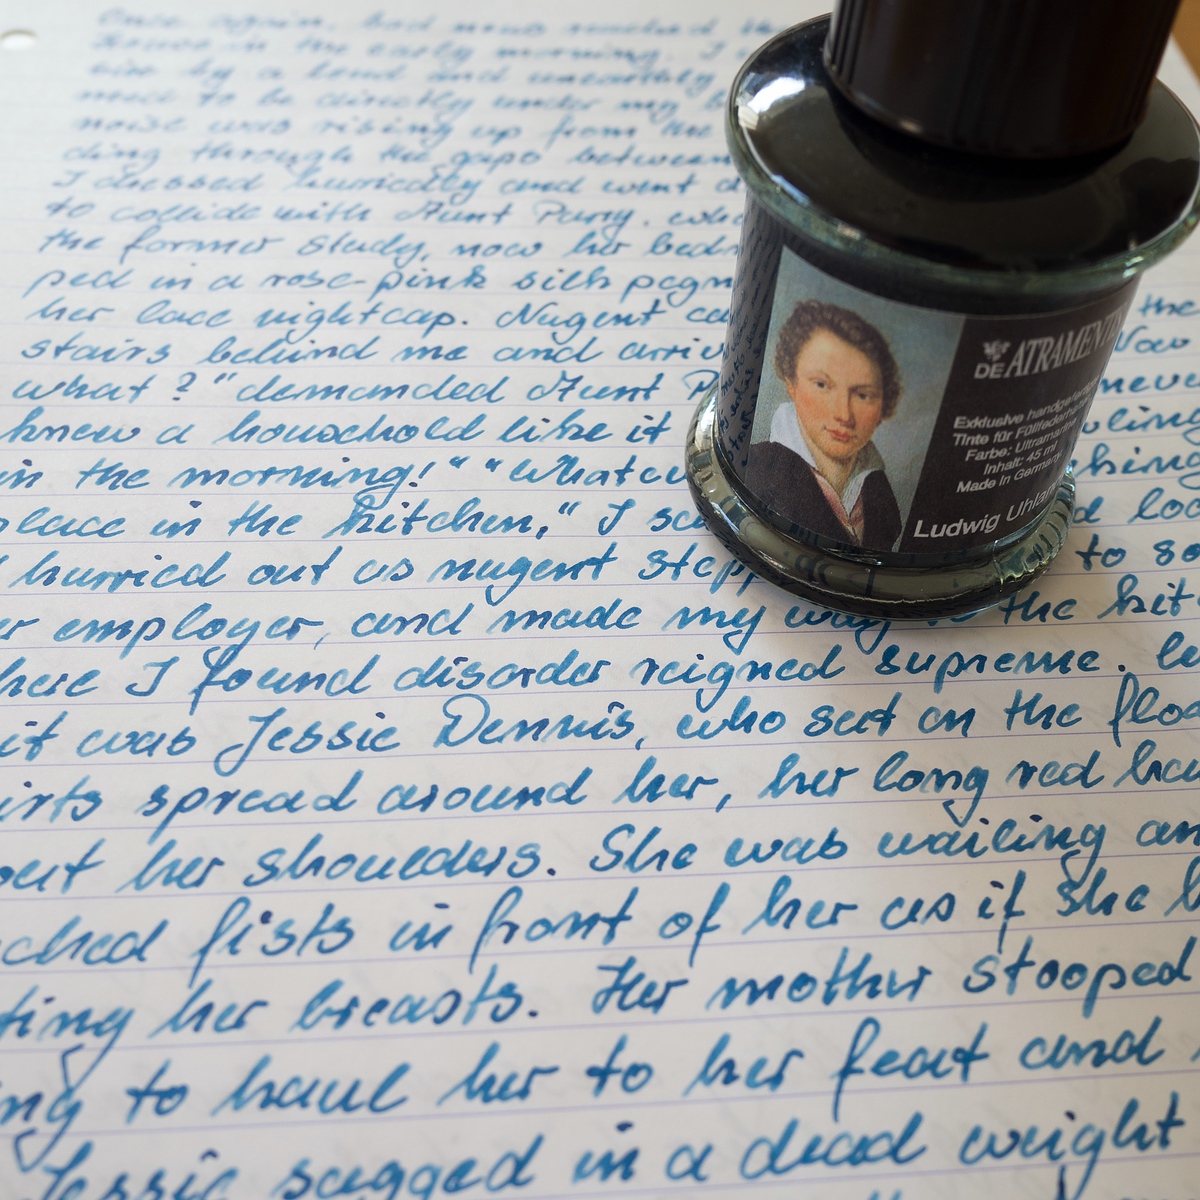 Once again, bad news reached the
house in the early morning. I
by a loud and unearthly
to be directly under my
noise was rising up from the
ding through the gaps between
I dressed hurriedly and went d
to collide with Aunt Parry. who
the former study, now her bedr
ped in a rose-pink silk pegn
her lace nightcap. Nugent ca the
stairs behind me and arriv Now
what?" demanded Aunt P never
knew a household like it
in the morning!" "Whatev thing
place in the kitchen," I sai d loo
hurried out as nugent stepp to so
er employer, and made my way to the kit
here I found disorder reigned supreme.
it was Jessie Dennis, who sat on the floo
irts spread around her, her long red hai
out her shoulders. She was wailing an
ched fists in front of her as if she
ting her breasts. Her mother stooped
ng to haul her to her feat and
Jessie sagged in a dead weight
DE ATRAMENTIS
Exklusive handgefertigte
Tinte für Füllfederhalter
Farbe: Ultramarin
Inhalt: 45 ml
Made in Germany
Ludwig Uhland